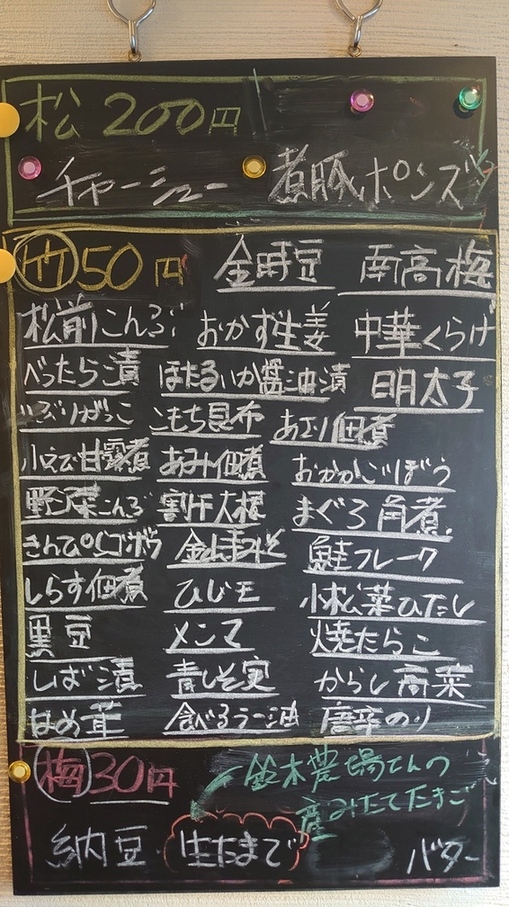 松 200円
チャーシュー 煮豚ポンズ
竹 50円 金時豆 南高梅
松前こんぶ おかず生姜 中華くらげ
べったら漬 ほたるいか醤油漬 明太子
いぶりがっこ こもち昆布 あさり佃煮
小えび甘露煮 あみ佃煮 おかかごぼう
野沢菜こんぶ 割干大根 まぐろ角煮
きんぴらゴボウ 鮭フレーク
しらす佃煮 ひじキ 小松菜ひたし
黒豆 メンマ 焼たらこ
しば漬 青しそ実 からし高菜
なめ茸 食べるラー油 唐辛のり
梅 30円 鈴木農場さんの
産みたてたまご
納豆 生たまご バター